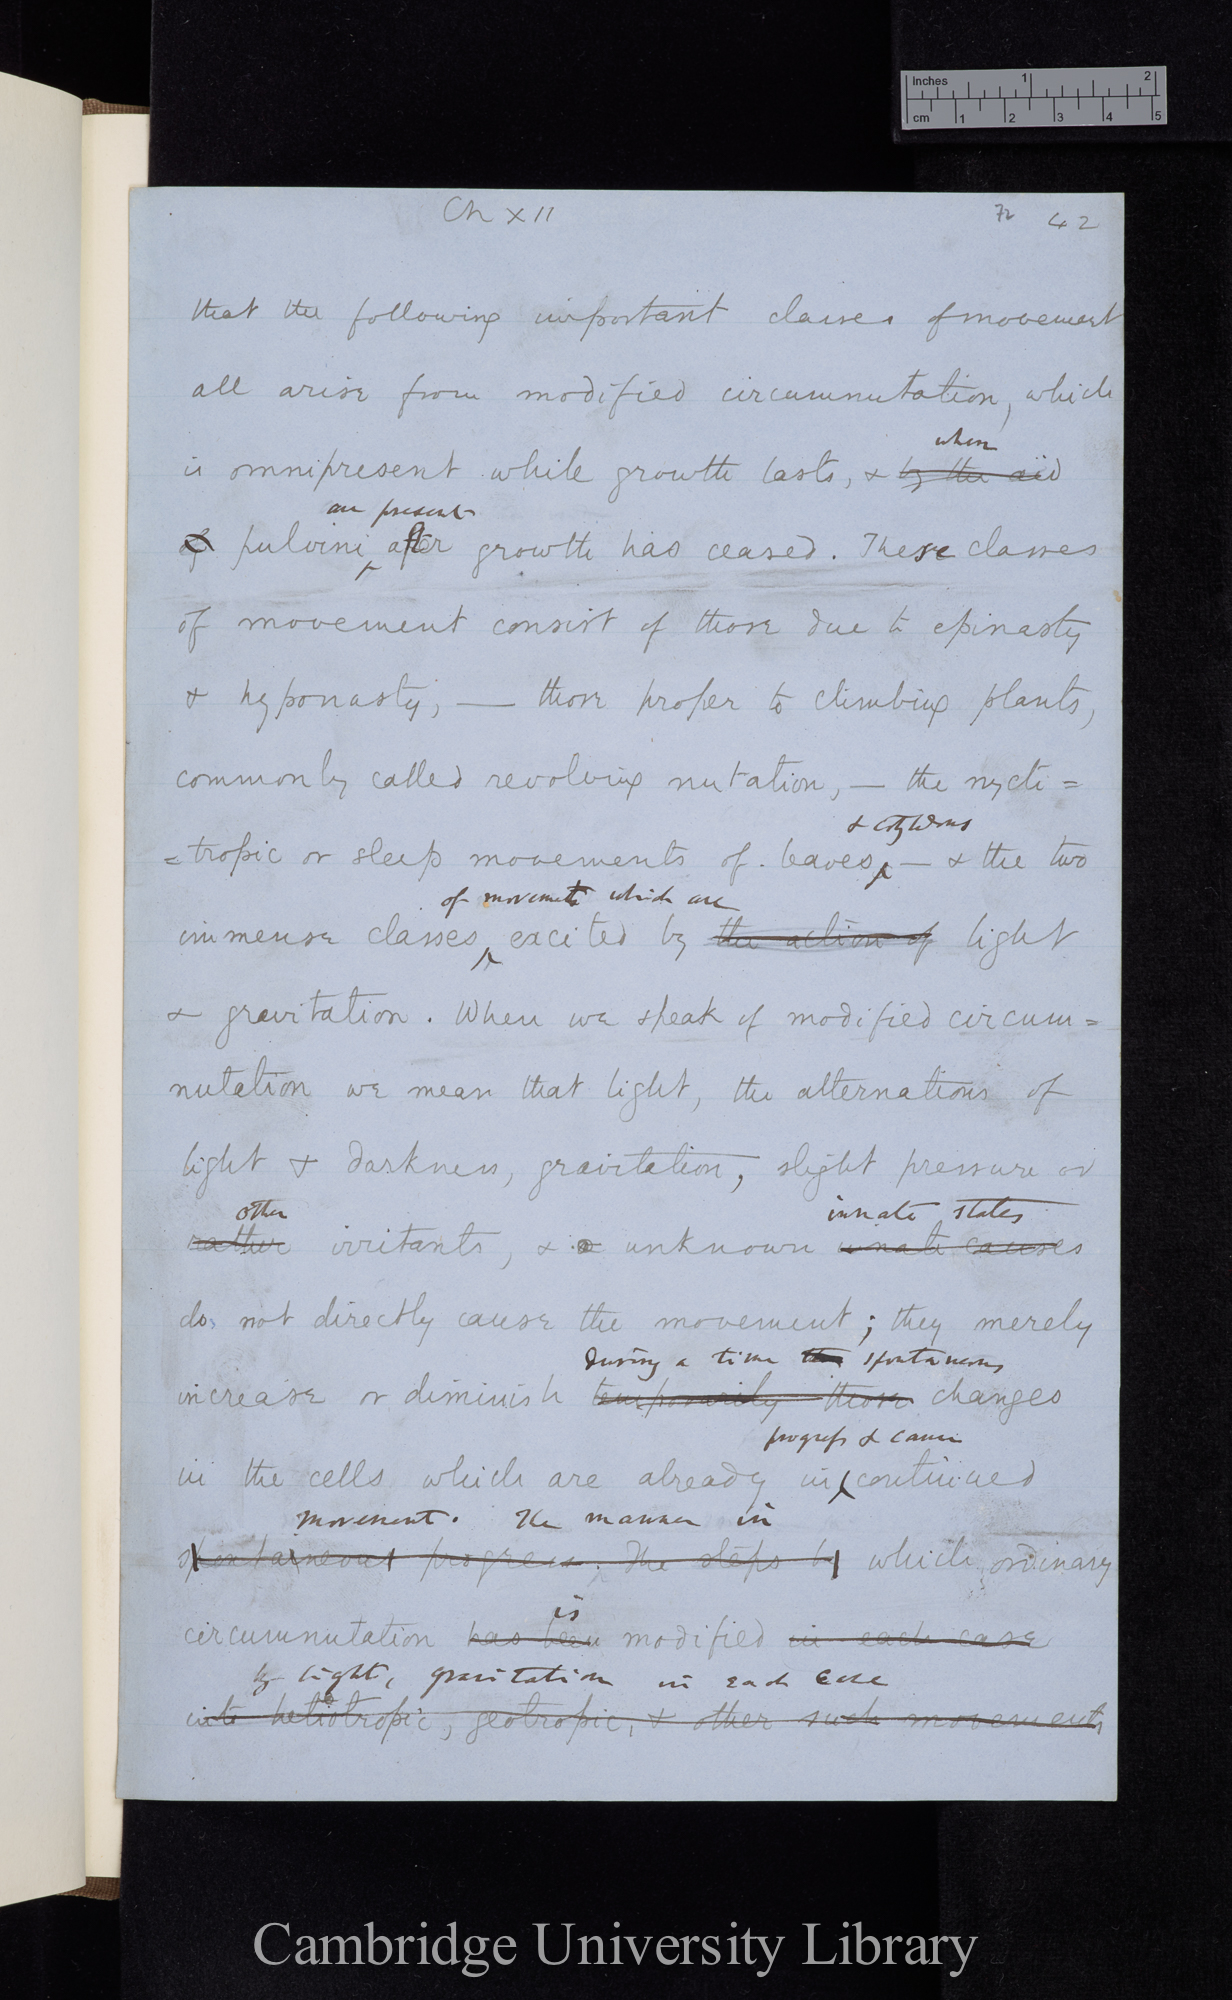 Inches 1 2
cm 1 2 3 4 5
Ch XII 72 42
that the following important classes of movement
all arise from modified circumnutation, which
when
is omnipresent while growth lasts, & by the aid
are present
of pulvini after growth has ceased. These classes
of movement consist of those due to epinasty
& hyponasty, — those proper to climbing plants,
commonly called revolving nutation, — the nycti=
& cotyledons
=tropic or sleep movements of leaves, — & the two
of movements which are
immense classes excited by the action of light
& gravitation. When we speak of modified circum=
nutation we mean that light, the alternations of
light & darkness, gravitation, slight pressure or
other innate states
rather irritants, & unknown innate causes
do not directly cause the movement; they merely
during a time the spontaneous
increase or diminish temporarily those changes
progress & cause
in the cells which are already in continued
movement. The manner in
spontaneous progress. The steps by which ordinary
is
circumnutation has been modified in each case
by light, gravitation in each case
into heliotropic, geotropic, & other such movements
Cambridge University Library